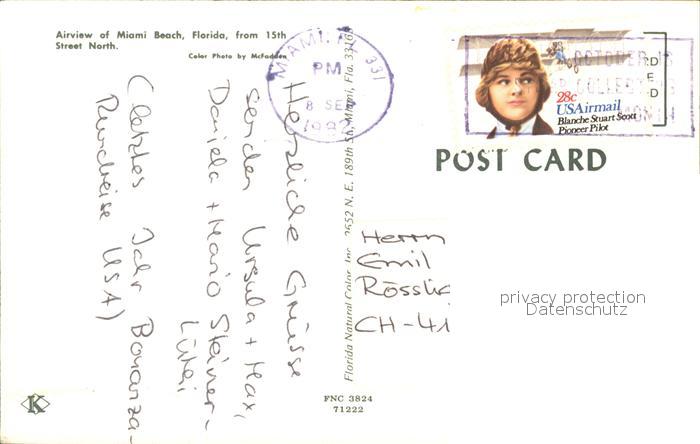 Airview of Miami Beach, Florida, from 15th
Street North.
Color Photo by McFadden
Herzliche Grüsse
senden Ursula + Max,
Daniela + Mario Steiner-
Lüthi
(letztes Jahr Bonanza-
Rundreise USA)
MIAMI, FL 331
PM
8 SEP
Florida Natural Color, Inc. 2552 N. E. 189th St., Miami, Fla. 33163
28c
USAirmail
Blanche Stuart Scott
Pioneer Pilot
OCTOBER IS
COLLECTING
MONTH
POST CARD
Herrn
Emil
CH-41
privacy protection
Datenschutz
K
FNC 3824
71222